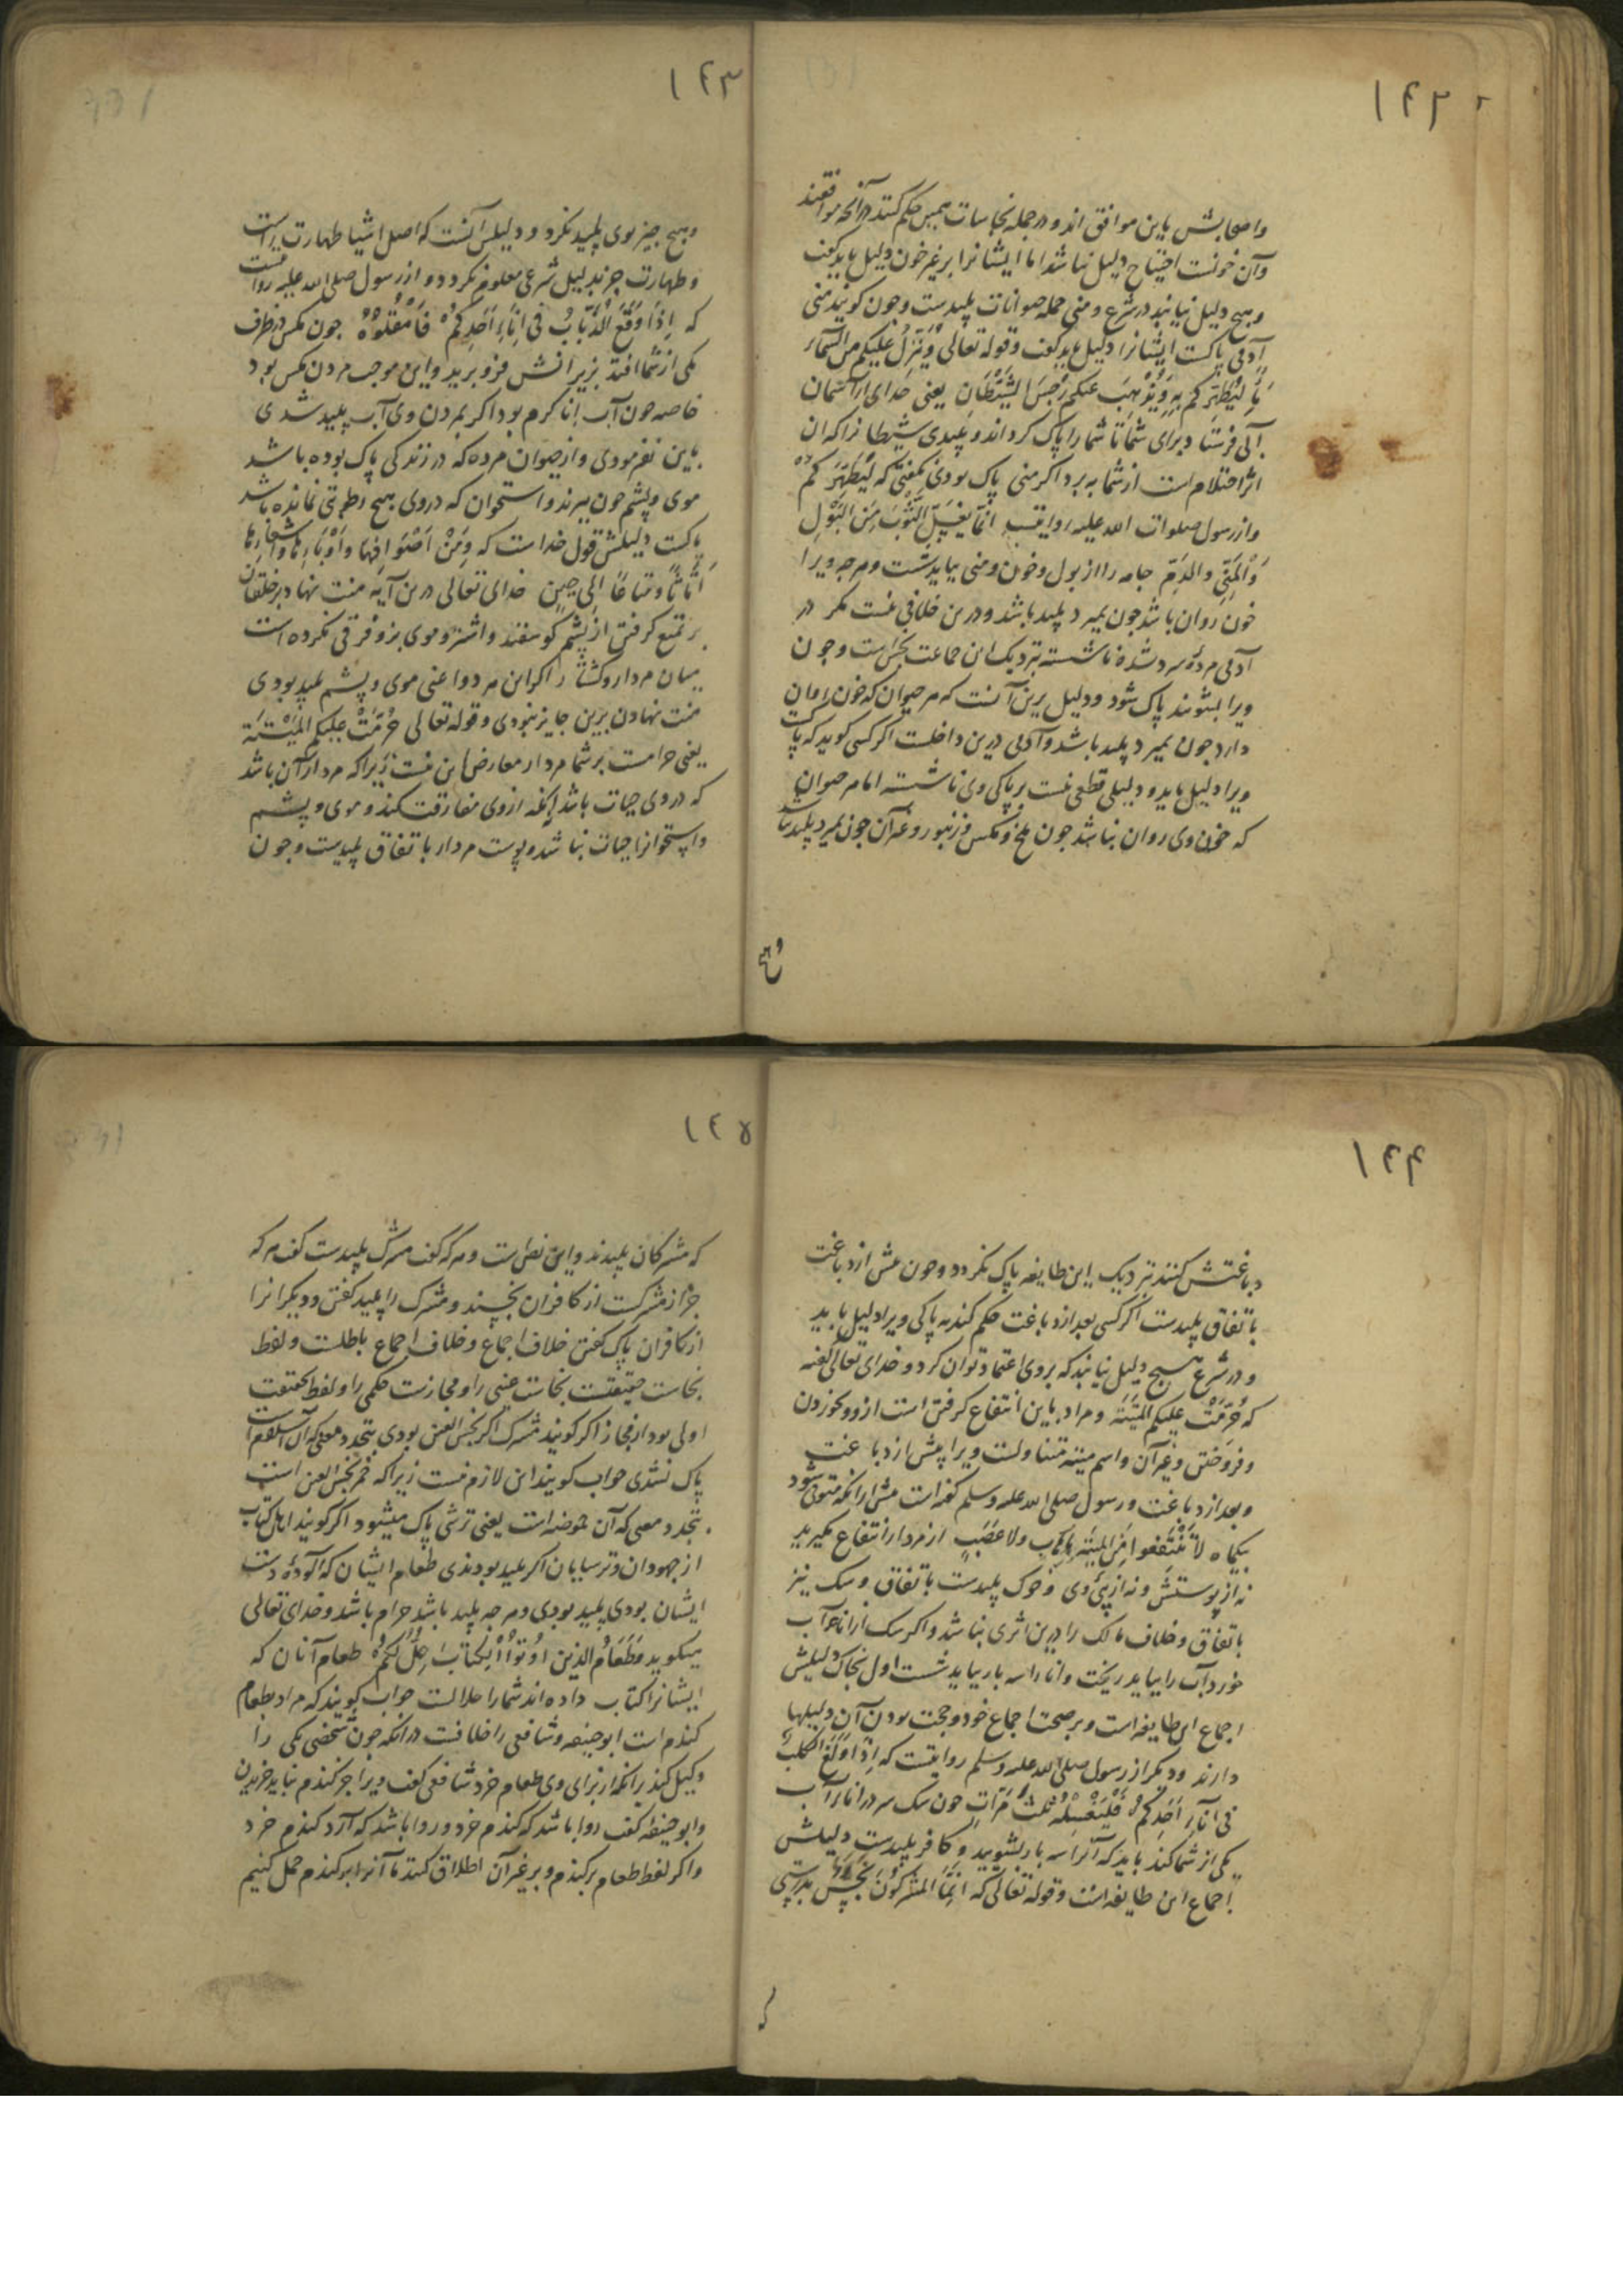 ۱۴۲
واصحابش باین موافق اند و در جمله نجاسات همین حکم کنند در آنچه موافقند
وآن خونست احتیاج دلیل نباشد اما ایشانرا بر غیر خون دلیل باید گفت
وهیچ دلیل نیابند در شرع و منی جمله حیوانات پلیدست وجون کویند منی
آدمی پاکست ایشانرا دلیل باید گفت وقوله تعالی وَیُنَزِّلُ عَلَیکم مِنَ السَّماءِ
مَاءً لِیُطَهِّرَکم بِهِ وَیُذْهِبَ عَنکم رِجْسَ الشَّیْطَانِ یعنی خدای از آسمان
آبی فرستاد برای شما تا شما را پاک کرداند و پلیدی شیطانرا که آن
اثر احتلام است از شما ببرد اکر منی پاک بودی نکفتی که لِیُطَهِّرَکُمْ
واز رسول صلوات الله علیه روایتست انّما یغسل الثَّوْبَ مِنَ الْبَوْلِ
وَالْمَنِیِّ والدَّمِ جامه را از بول وخون ومنی بباید شست وهرچه ویرا
خون روان باشد جون بمیرد پلید باشد ودرین خلافی نیست مکر در
آدمی مردۀ سرد شده ناشسته نزدیک این جماعت نجس است وجون
ویرا بشویند پاک شود ودلیل برین آنست که هر حیوان که خون روان
دارد جون بمیرد پلید باشد وآدمی درین داخلست اکر کسی کوید که پاکست
ویرا دلیل باید ودلیلی قطعی نیست بر پاکی وی ناشسته اما هر حیوان
که خون وی روان نباشد جون ملخ ومکس وزنبور وغیر آن جون بمیرد پلید نباشد
وهیچ
۱۴۳
وهیچ چیز بوی پلید نکردد ودلیلش آنست که اصل اشیا طهارت است
وطهارت جز بدلیل شرعی معلوم نکردد واز رسول صلی الله علیه روایتست
که اِذَا وَقَعَ الذُّبَابُ فی اِنَاءِ اَحَدِکُمْ فَامْقُلُوْهُ جون مکس در ظرف
یکی از شما افتد بزیر آنش فرو برید واین موجب مردن مکس بود
خاصه جون آب انا کرم بود اکر بمردن وی آب پلید شدی
باین نفرمودی واز حیوان مرده که در زندکی پاک بوده باشد
موی وپشم جون ببرند واستخوان که در وی هیچ رطوبتی نمانده باشد
پاکست دلیلش قول خداست که وَمِنْ اَصْوَافِهَا وَاَوْبَارِهَا وَاَشْعَارِهَا
اَثَاثًا وَمَتَاعًا اِلی حِینٍ خدای تعالی درین آیه منت نهاد بر خلقان
بر تمتع کرفتن از پشم کوسفند واشتر وموی بز وفرقی نکرده است
میان مردار وکشتار اکر این هر دو اعنی موی وپشم پلید بودی
منت نهادن برین جایز نبودی وقوله تعالی حُرِّمَتْ عَلَیْکُم الْمَیْتَةُ
یعنی حرامست بر شما مردار معارض این نیست زیرا که مردار آن باشد
که در وی حیات باشد آنکه از وی مفارقت کند وموی وپشم
واستخوانرا حیات نباشد وپوست مردار باتفاق پلیدست وجون
۱۴۴
دباغتش کنند نزدیک این طایفه پاک نکردد وجون پیش از دباغت
باتفاق پلیدست اکر کسی بعد از دباغت حکم کند به پاکی ویرا دلیل باید
ودر شرع هیچ دلیل نیابند که بر وی اعتماد توان کرد وخدای تعالی کفته
که حُرِّمَتْ عَلَیکم الْمَیْتَةُ ومراد باین انتفاع کرفتن است ازو وخوردن
وفروختن وغیر آن واسم میته متناولست ویرا پیش از دباغت
وبعد از دباغت ورسول صلی الله علیه وسلم کفته است پیش از آنکه متوفی شود
بیکماه لاتَنْتَفِعوا مِنَ المیتَةِ بِاِهَابٍ ولا عَصَبٍ از مردار انتفاع مکیرید
نه از پوستش ونه از پیٔ وی وخوک پلیدست باتفاق وسک نیز
باتفاق وخلاف مالک را درین اثری نباشد واکر سک از اناء آب
خورد آب را بباید ریخت وانا را سه بار بباید شست اول بخاک دلیلش
اجماع این طایفه است وبر صحت اجماع خود وحجت بودن آن دلیلها
دارند ودیکر از رسول صلی الله علیه وسلم روایتست که اِذَا وَلَغَ الکلبُ
فی اناءِ اَحَدِکُمْ فَلْیَغْسِلْهُ ثَلثَ مَرّاتٍ جون سک سر در اناء آب
یکی از شما کند باید که آنرا سه بار بشویید وکافر پلیدست دلیلش
اجماع این طایفه است وقوله تعالی که اِنَّمَا المُشْرِکُونَ نَجَسٌ بدرستی
که
۱۴۵
که مشرکان پلیدند واین نص است وهر که کفت مشرک پلیدست کفت هر که
جز از مشرکست از کافران نجسند ومشرک را پلید کفتن ودیکرانرا
از کافران پاک کفتن خلاف اجماع وخلاف اجماع باطلست ولفظ
نجاست حقیقتست نجاست عینی را ومجازست حکمی را ولفظ حقیقت
اولی بود از مجاز اکر کویند مشرک اکر نجس العین بودی بتجدد معنی که آن اسلام است
پاک نشدی جواب کویند این لازم نیست زیرا که خمر نجس العین است
بتجدد معنی که آن حموضه است یعنی ترشی پاک میشود اکر کویند اهل کتاب
از جهودان وترسایان اکر پلید بودندی طعام ایشان که آلودۀ دست
ایشان بودی پلید بودی وهرچه پلید باشد حرام باشد وخدای تعالی
میکوید وَطَعَامُ الذین اُوتُوْا الْکِتَابَ حِلٌّ لَکُمْ طعام آنان که
ایشانرا کتاب داده اند شما را حلالست جواب کویند که مراد بطعام
کندم است ابوحنیفه وشافعی را خلافست در آنکه جون شخصی یکی را
وکیل کند بر آنکه از برای وی طعام خرد شافعی کفت ویرا جز کندم نباید خریدن
وابوحنیفه کفت روا باشد که کندم خرد وروا باشد که آرد کندم خرد
واکر لفظ طعام بر کندم وبر غیر آن اطلاق کنند ما آنرا بر کندم حمل کنیم